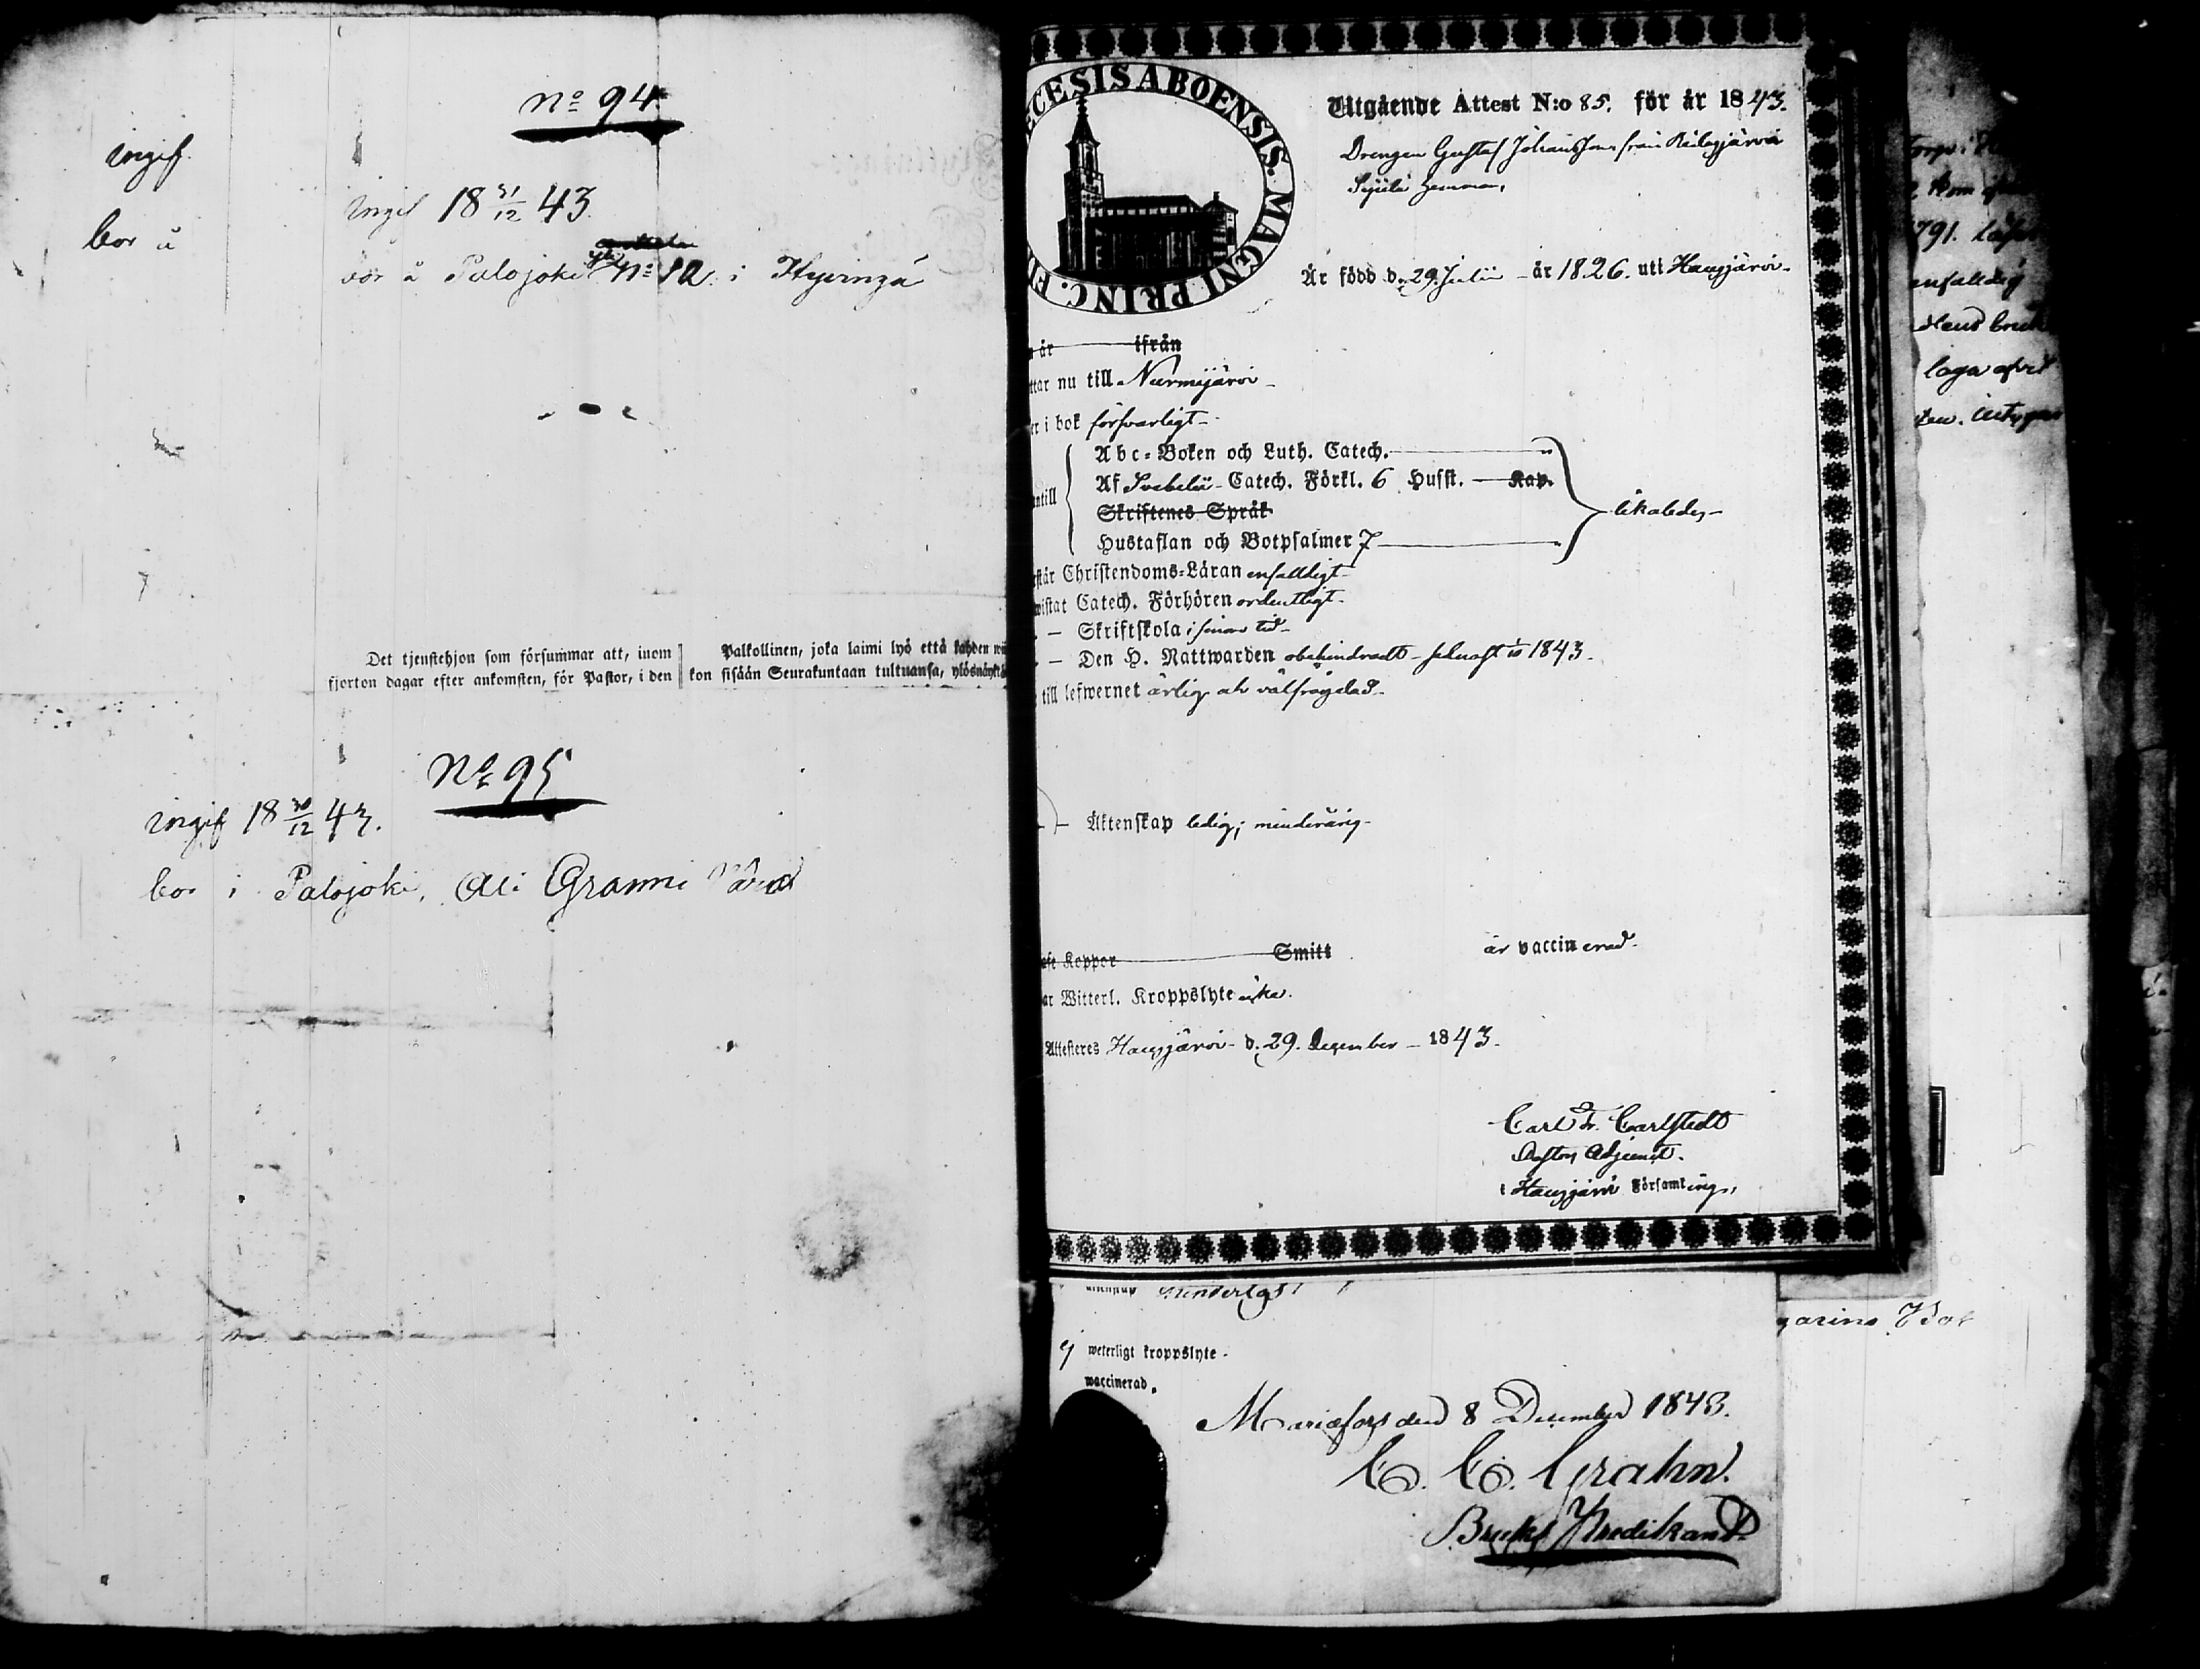 No 94.
ingif.
ingif 18 31/12 43.
bor å
bor å Palojoki No 12. i Hyvingä
Det tjenstehjon som försummar att, inom
fjorton dagar efter ankomsten, för Pastor, i den
Palkollinen, joka laimi lyö että kahden wii
kon sisään Seurakuntaan tultuansa, ylösnäyttä
No 95
ingif 18 30/12 43.
bor i Palojoki, Ali Granni
CESIS ABOENSIS. MAGNI PRINC. F
Utgående Attest N:o 85. för år 1843.
Drengen Gustaf Johansson från
hemman,
Är född d. 29. Julii - år 1826. uti Hausjärvi -
år ifrån
ttar nu till Nurmijärvi -
er i bok försvarligt -
Abc-Boken och Luth. Catech.
Af Svebelii - Catech. Förkl. 6 Husst. Kap.
ntill
likaledes -
Skriftenes Språk
Hustaflan och Botpsalmer 7
står Christendoms-Läran enfaldigt -
wistat Catech. Förhören ordentligt -
- Skriftskola i sinom tid -
- Den H. Nattwarden obehindradt - 1843.
till lefwernet ärlig och välfrägdad -
- Äktenskap ledig; minderårig -
Koppor Smitt är vaccinerad.
ar Witterl. Kroppslyte icke.
Attesteras Hausjärvi - d. 29. December - 1843.
Carl F. Carlstedt
Pastors Adjunct.
i Hausjärvi Församling.
hinderlös
ej weterligt kroppslyte -
waccinerad.
Mariæfors den 8 December 1843.
C. C. Grahn.
Bruks Predikant
1791.
enfaldig
laga